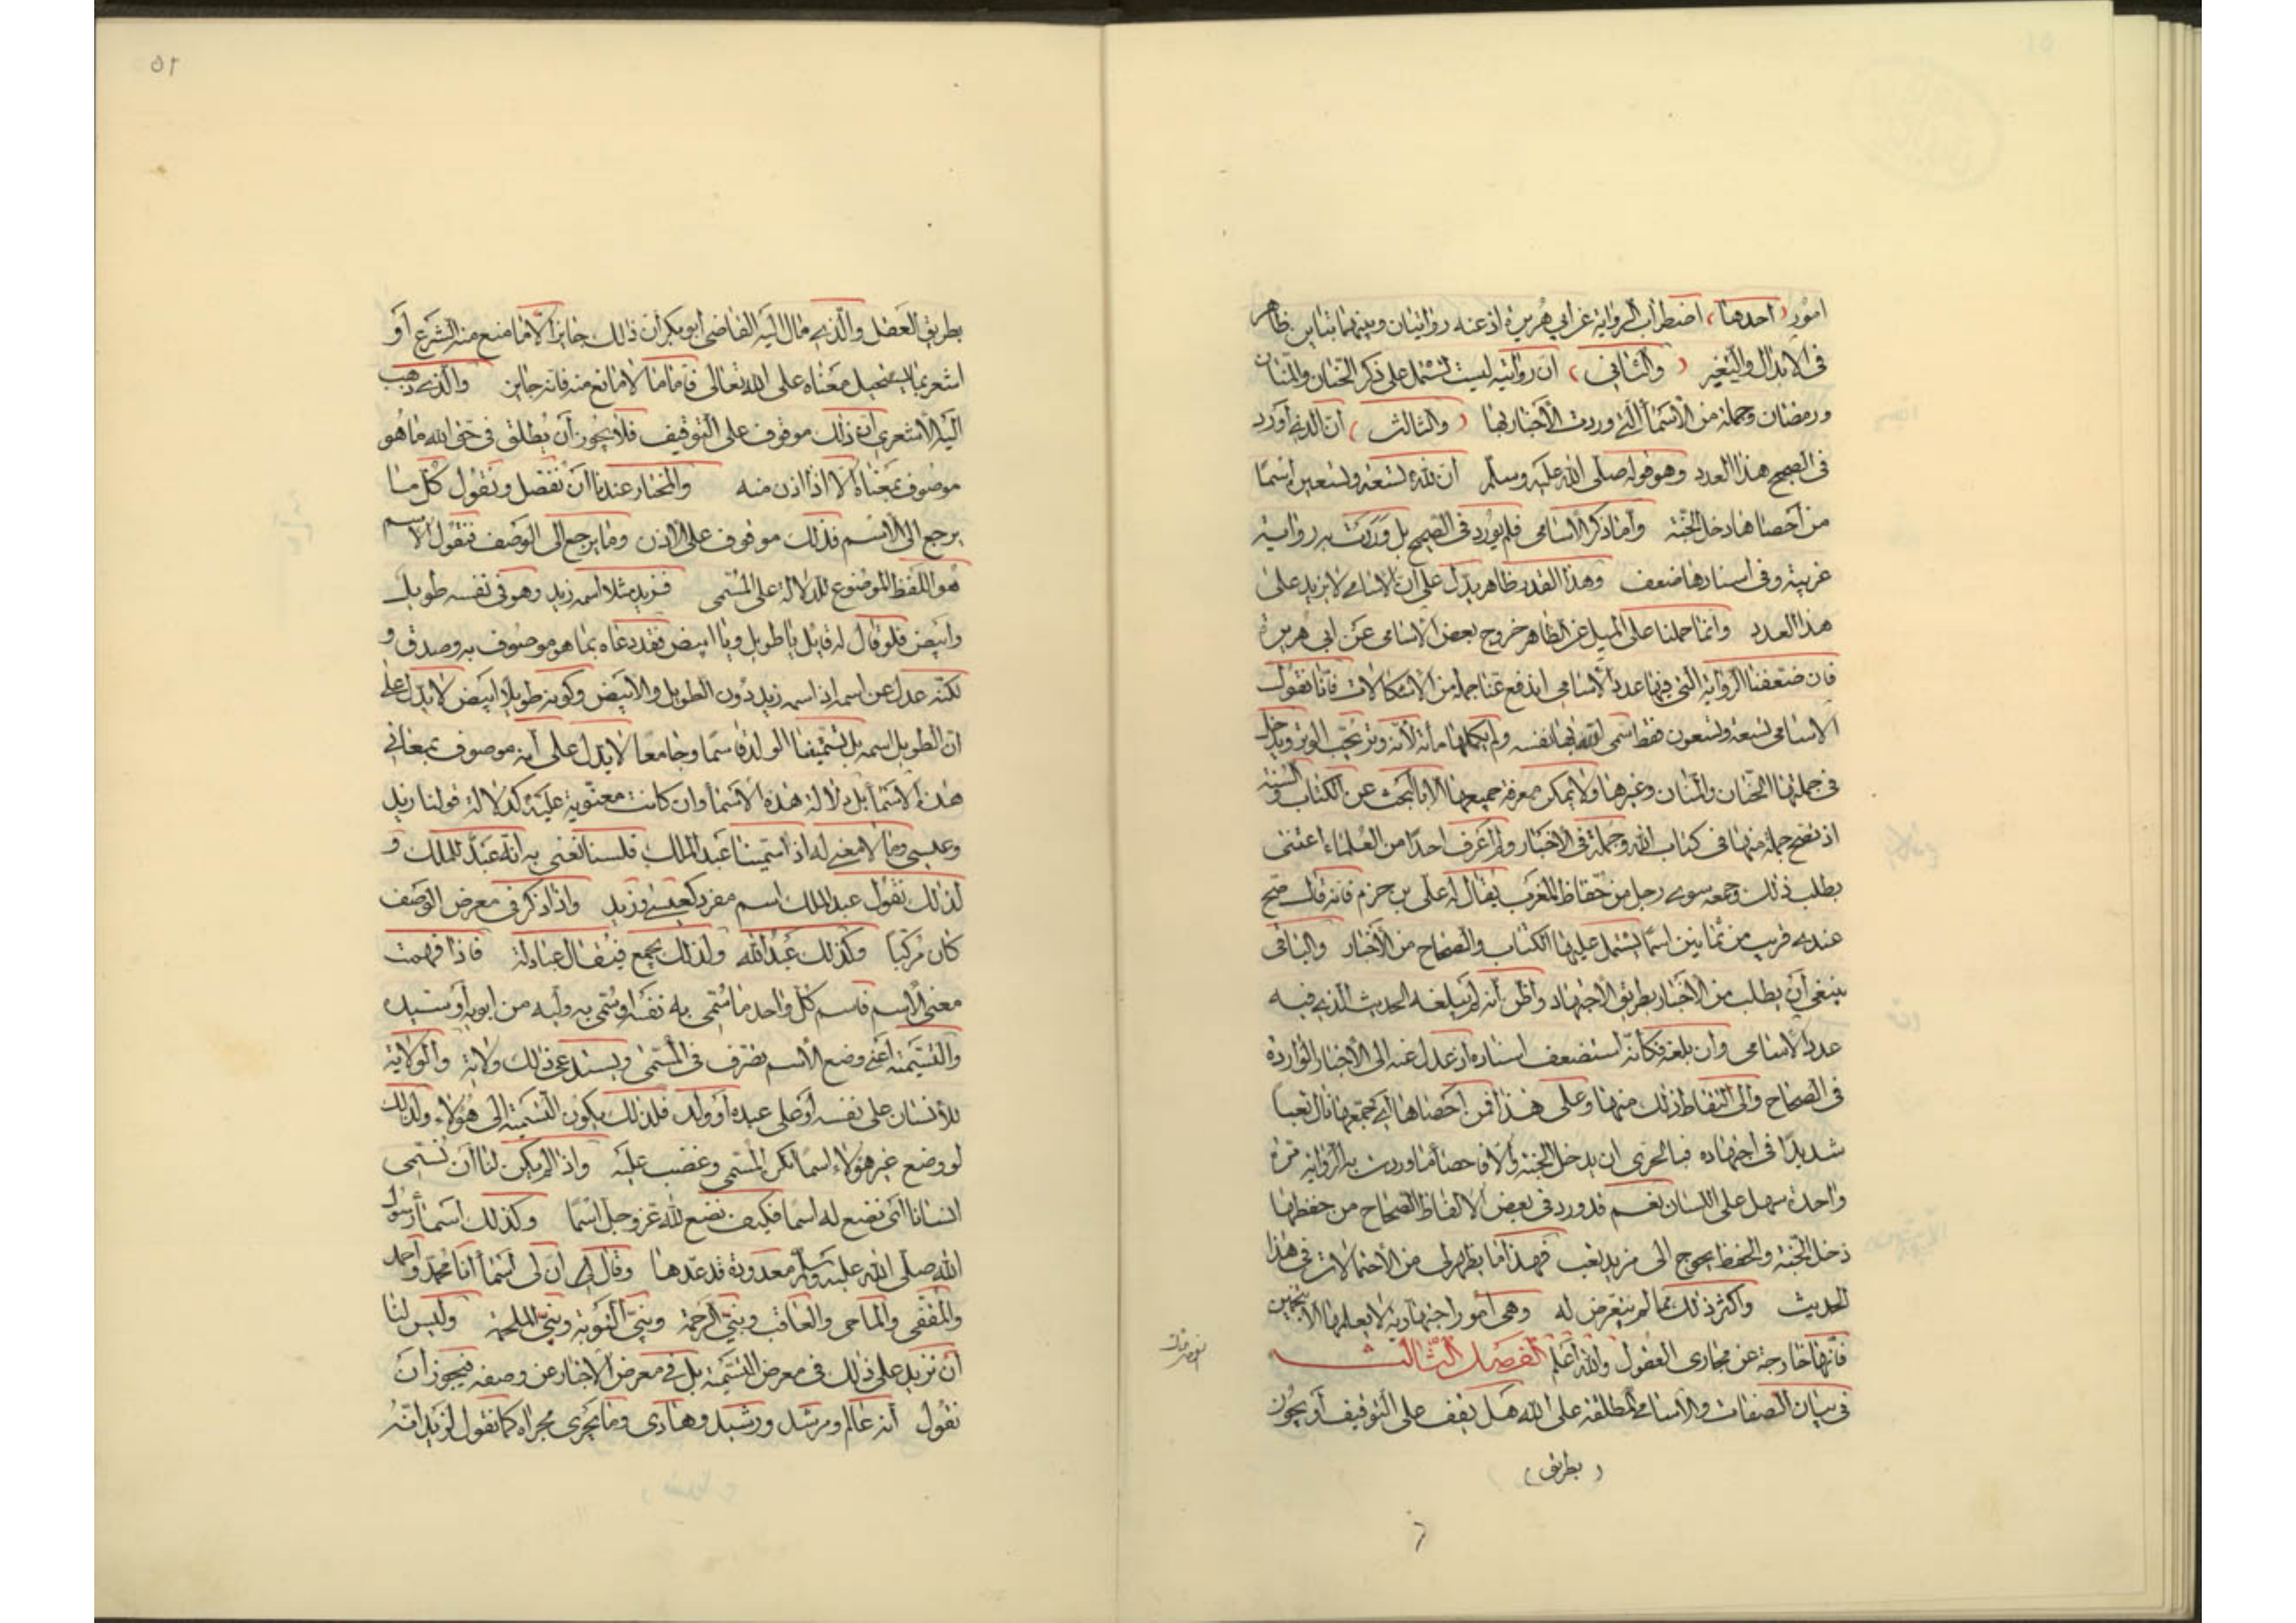 امور (احدها) اضطراب الرواية عن ابى هريرة اذ عنه روايتان وبينهما تباين ظاهر
فى الابدال والتغيير (والثانى) ان روايتيه ليست تشتمل على ذكر الحنان والمنان
ورمضان وجملة من الأسماء التى وردت الأخبار بها (والثالث) ان الذى أورد
فى الصحيح هذا العدد وهو قوله صلى الله عليه وسلم ان لله تسعة وتسعين اسما
من أحصاها دخل الجنة وأما ذكر الأسامى فلم يورد فى الصحيح بل وردت به رواية
غريبة وفى اسنادها ضعف وهذا القدر ظاهر يدل على أن الاسامى لا يزيد على
هذا العدد وانما حملنا على الميل عن الظاهر خروج بعض الاسامى عن ابى هريرة
فان ضعفنا الرواية التى فيها عدد الاسامى اندفع عنا جملة من الاشكالات فانا نقول
الاسامى تسعة وتسعون فقط سمى الله بها نفسه ولم يكملها مائة لأنه وتر يحب الوتر ويدخل
فى جملتها الحنان والمنان وغيرها ولا يمكن معرفة جميعها الا بالبحث عن الكتاب والسنة
اذ تصح جملة منها فى كتاب الله وجملة فى الاخبار ولم اعرف احدا من العلماء اعتنى
بطلب ذلك وجمعه سوى رجل من حفاظ المغرب يقال له على بن حزم فانه قال صح
عندى قريب من ثمانين اسما يشتمل عليها الكتاب والصحاح من الأخبار والباقى
ينبغى أن يطلب من الأخبار بطريق الاجتهاد واظن أنه لم يبلغه الحديث الذى فيه
عدد الاسامى وان بلغه فكأنه استضعف اسناده اذ عدل عنه الى الأخبار الواردة
فى الصحاح والى التقاط ذلك منها وعلى هذا فمن أحصاها أى جمعها نال تعبا
شديدا فى اجتهاده فبالحرى ان يدخل الجنة والا فاحصاء ما وردت به الرواية مرة
واحدة سهل على اللسان نعم قد ورد فى بعض الالفاظ الصحاح من حفظها
دخل الجنة والحفظ يحوج الى مزيد تعب فهذا ما يظهر لى من الأحتمالات فى هذا
الحديث واكثر ذلك مما لم يتعرض له وهى امور اجتهادية لا يعلم الا بتخمين
فانها خارجة عن مجارى العقول والله أعلم الفصل الثالث
فى بيان الصفات والاسامى المطلقة على الله هل يقف على التوقيف أو يجوز
(بطريق)
٥٢
بطريق العقل والذى مال اليه القاضى أبو بكر أن ذلك جايز الا ما منع منه الشرع أو
اشعر بما يستحيل معناه على الله تعالى فأما ما لا مانع منه فانه جايز والذى ذهب
اليه الأشعرى ان ذلك موقوف على التوقيف فلا يجوز أن يطلق فى حق الله ما هو
موصوف بمعناه الا اذا اذن منه والمختار عندنا أن نفصل ونقول كل ما
يرجع الى الاسم فذلك موقوف على الاذن وما يرجع الى الوصف فنقول الاسم
هو اللفظ الموضوع للدلالة على المسمى فزيد مثلا اسمه زيد وهو فى نفسه طويل
وابيض فلو قال له قايل يا طويل ويا ابيض فقد دعاه بما هو موصوف به وصدق و
لكنه عدل عن اسمه اذ اسمه زيد دون الطويل والأبيض وكونه طويلا ابيض لا يدل على
ان الطويل اسمه بل تسميتنا الولد قاسما وجامعا لا يدل على أنه موصوف بمعانى
هذه الأسماء بل دلالة هذه الأسماء وان كانت معنوية عليه كدلالة قولنا زيد
وعيسى وما لا معنى له اذا سمينا عبد الملك فلسنا نعنى به أنه عبد للملك و
لذلك نقول عبد الملك اسم مفرد كعيسى وزيد واذا ذكر فى معرض الوصف
كان مركبا وكذلك عبد الله ولذلك يجمع فيقال عبادلة فاذا فهمت
معنى الاسم فاسم كل واحد ما سمى به نفسه او سمى به وليه من ابويه أو سيده
والتسمية أعنى وضع الأسم تصرف فى المسمى ويستدعى ذلك ولاية والولاية
للأنسان على نفسه أو على عبده أو ولده فلذلك يكون التسمية الى هؤلاء ولذلك
لو وضع غير هؤلاء اسما انكر المسمى وغضب عليه واذا لم يكن لنا أن نسمى
انسانا أى نضع له اسما فكيف نضع لله عز وجل اسما وكذلك اسماء رسول
الله صلى الله عليه وسلم معدودة قد عدها وقال ان لى أسماء أنا محمد وأحمد
والمقفى والماحى والعاقب ونبى الرحمة ونبى التوبة ونبى الملحمة وليس لنا
أن نزيد على ذلك فى معرض التسمية بل فى معرض الاخبار عن وصفه فيجوز أن
نقول أنه عالم ومرشد ورشيد وهادى وما يجرى مجراه كما نقول لزيد انه